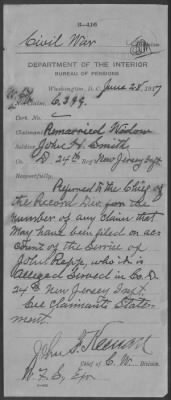 3-416
Civil War
Division
DEPARTMENT OF THE INTERIOR
BUREAU OF PENSIONS
Washington, D. C., June 28, 1917
Claim,
Cert. No.
Claimant Remarried Widow
Soldier John H. Smith
Co. D. 24th Reg. New Jersey Inft
Respectfully,
Referred to the Chief of
the Record Div. for the
number of any claim that
may have been filed on ac
count of the service of
John Rapp, who is
alleged served in Co. D
24th New Jersey Inft.
See Claimants State-
ment.
Chief of C. W. Division.
Exr